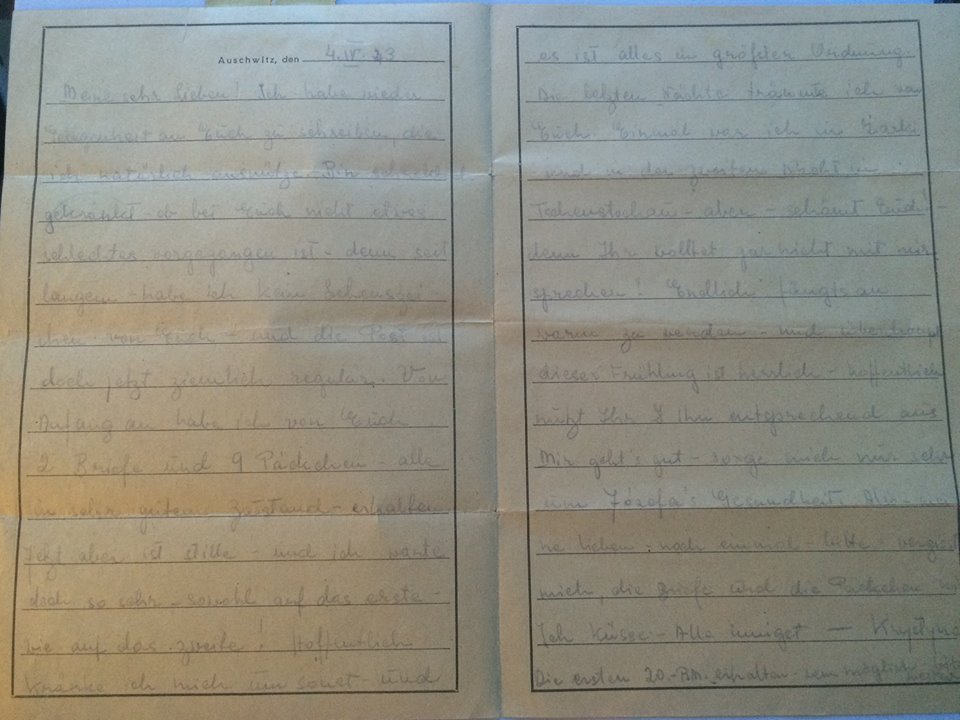 Auschwitz, den 4.IV.43
Meine sehr Lieben! Ich habe wieder
Gelegenheit an Euch zu schreiben, die
ich natürlich ausnütze. Bin schreckl.
gekränkt - ob bei Euch nicht etwas
schlechtes vorgegangen ist - denn seit
langem - habe ich kein Lebenszei-
chen von Euch - und die Post ist
doch jetzt ziemlich regular. Von
Anfang an habe ich von Euch
2 Briefe und 9 Päckchen - alle
in sehr gutem Zustand - erhalten
Jetzt aber ist stille - und ich warte
doch so sehr - sowohl auf das erste -
wie auf das zweite! Hoffentlich
kränke ich mich umsonst - und
es ist alles in größter Ordnung.
Die letzten Nächte träumte ich von
Euch. Einmal war ich in Żarki
und in der zweiten Nacht in
Tschenstochau - aber - schämt Euch -
denn Ihr wolltet gar nicht mit mir
sprechen! Endlich fängts an
warm zu werden - und überhaupt
dieser Frühling ist herrlich - hoffentlich
nützt Ihr Ihn entsprechend aus
Mir geht's gut - sorge mich nur sehr
um Józefa's Gesundheit. Also - mei
ne lieben - noch einmal - bitte - vergißt
mich, die Briefe und die Päckchen
Ich küsse - Alle innigst — Krystyna
Die ersten 20.-RM. erhalten - wenn möglich